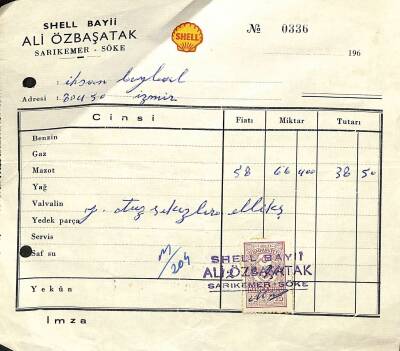 SHELL BAYİİ
ALİ ÖZBAŞATAK
SARIKEMER - SÖKE
SHELL
№ 0336
196
ihsan
Adresi : izmir
Cinsi Fiatı Miktar Tutarı
Benzin
Gaz
Mazot 58 66 400 38 50
Yağ
Valvalin
Yedek parça y. otuz sekizlira ellikş
Servis
Saf su M/204
SHELL BAYİİ
ALİ ÖZBAŞATAK
SARIKEMER - SÖKE
Yekûn
İmza